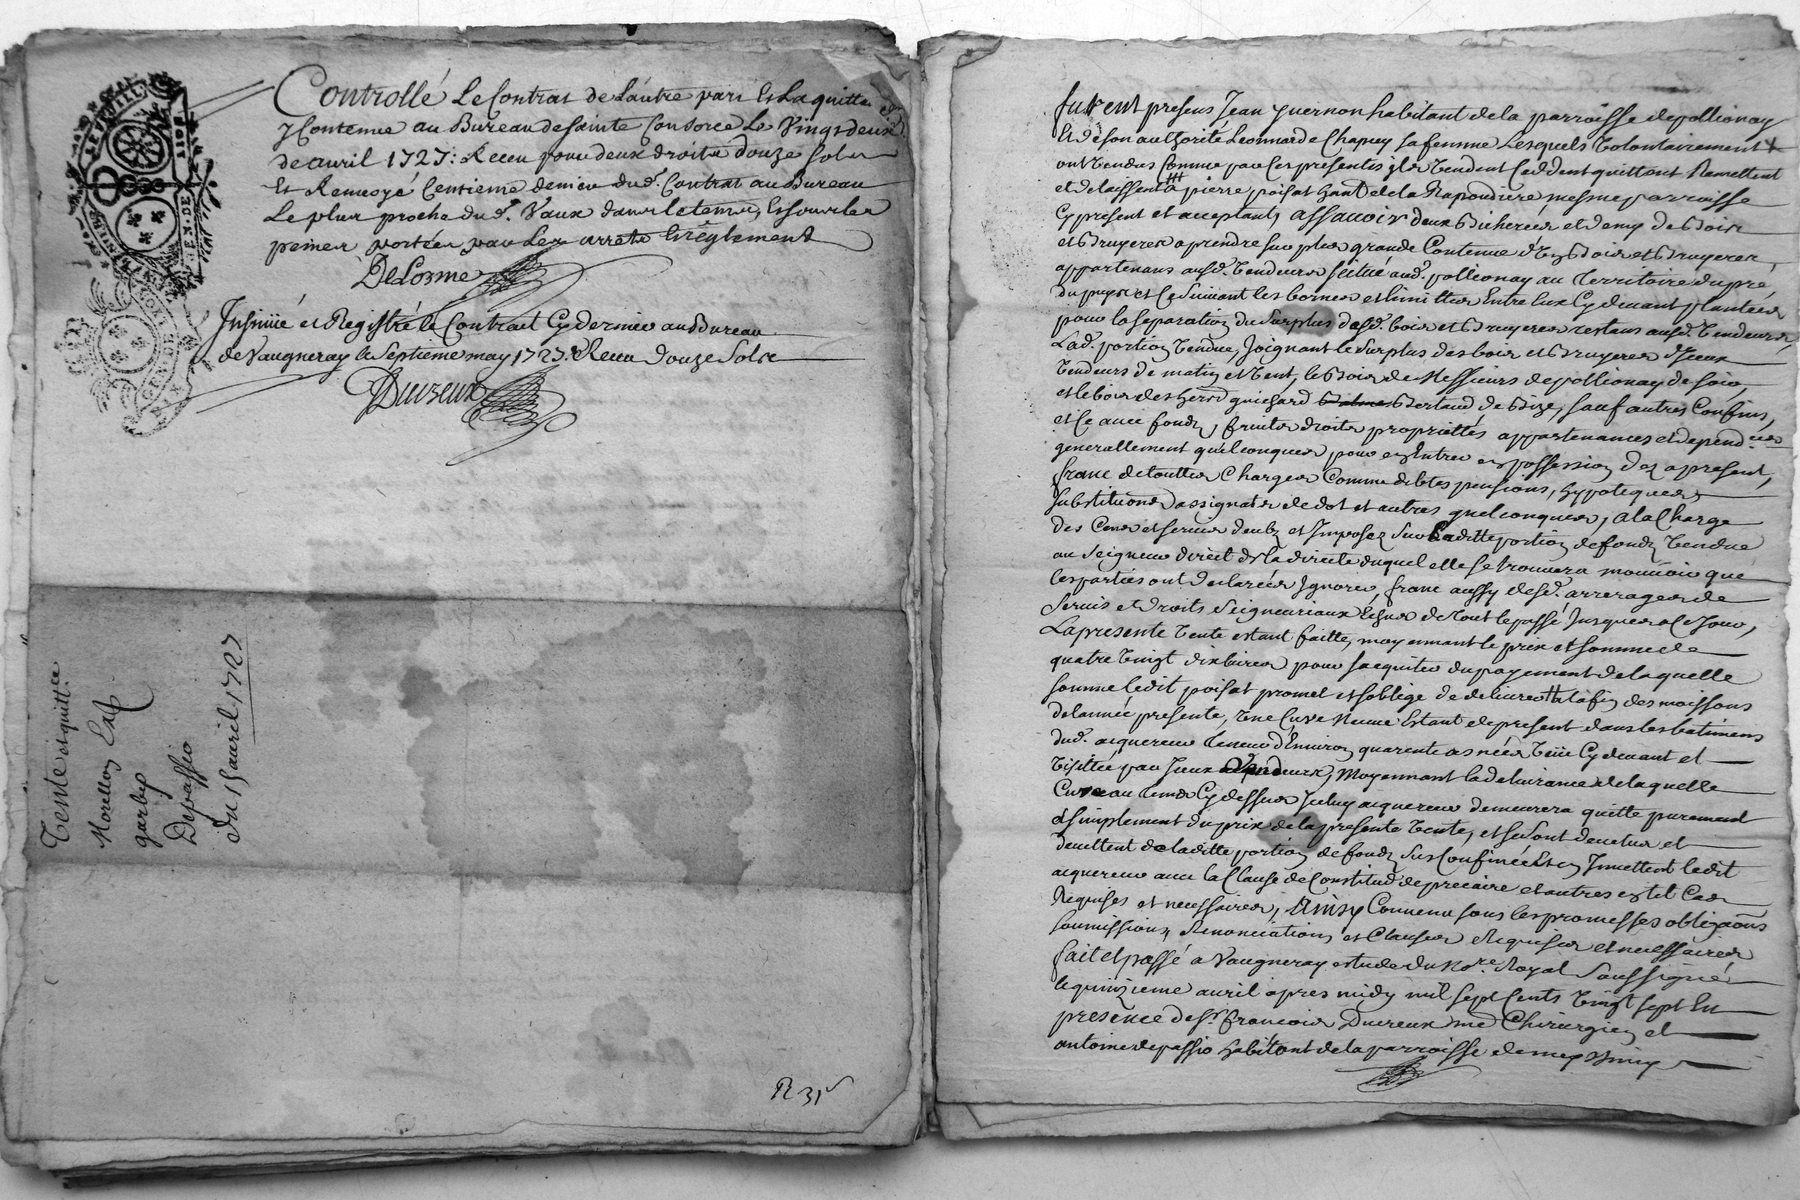 Controllé Le Contrat de Lautre part Et La quittce
y Contenue au Bureau de Sainte Consorce Le Vingtdeux
de avril 1727: Receu pour deux droits douze sols
Et Renvoyé Centieme denier dud. Contrat au Bureau
Le plus proche du d. Vaux dans le temps, Et sous les
peines portées par Les arrets Et règlement
DeLorme
Insinüé et Registré le Contrat Cy dernier au Bureau
de Vaugneray le Septieme may 1727. Receu douze Sols
Ducreux
Vente et quitt.
du 15 avril 1727
R 31
furent presens Jean guernon habitant de la parroisse de pollionay
Et de son authorité Leonnarde Chapuy sa femme Lesquels Volontairement
ont Vendus Comme par Ces presentes ils Vendent Ceddent quittent Remettent
et delaissent a pierre poisat Grand de la Rapondiere mesme parroisse
Cy present et acceptant, assavoir deux Bicherées et demy de Bois
et Bruyeres a prendre sur plus grande Contenue des Bois et Bruyeres
appartenans ausd. Vendeurs scitué aud. pollionay au Territoire du pré
du puys et Ce Suivant les bornes et limittes Entre Eux Cy devant plantées
pour la separation du Surplus desd. bois et Bruyeres restans ausd. Vendeurs,
Lad. portion Vendue, Joignant le Surplus des bois et Bruyeres d'Yceux
Vendeurs de matin et Vent, le Bois de Messieurs de pollionay de soir,
et le bois des hers guichard Bertaud de Bize, sauf autres Confins,
et Ce avec fondz, fruits droits proprietés appartenances et dependces
generallement quelconques, pour en Entrer en possession dez apresent,
franc de touttes Charges Comme debtes pensions, hypoteques
substitutions assignats de dot et autres quelconques, a la Charge
des Cens et servis deubz et Imposez Sur Laditte portion de fondz Vendue
au Seigneur direct de la directe duquel elle se trouvera mouvoir que
les parties ont declarées Ignorer, franc aussy desd. arrerages de
Servis et droits Seigneuriaux Echus de tout le passé Jusques a Ce Jour,
La presente Vente estant faitte, moyennant le prix et somme de
quatre Vingt dix livres pour s'acquiter du payement de laquelle
somme ledit poisat promet et s'oblige de delivrer a la fin des moissons
de lannée presente, Une Cuve Neuve Estant de present dans les batimens
dud. acquereur Teneur d'Environ quarente asnées Vüe Cy devant et
Visittée par Iceux Vendeurs, Moyennant la delivrance de laquelle
Cuve au tems Cy dessus Icelluy acquereur demeurera quitte purement
et simplement du prix de la presente Vente, et se sont devetus et
devettent de laditte portion de fondz sus Confinée Et en Investent ledit
acquereur avec la Clause de Constitut de precaire et autres en tel Cas
Requises et necessaires, Ainsy Convenu sous les promesses obligaons
soumissions, Renonciations et Clauses Requises et necessaires
fait et passé a Vaugneray estude du Nore. Royal Soussigné
le quinzieme avril apres midy mil sept Cents Vingt sept En
presence de Sr. francois Ducreux me Chirurgien et
antoine depassio habitant de la parroisse de messimy